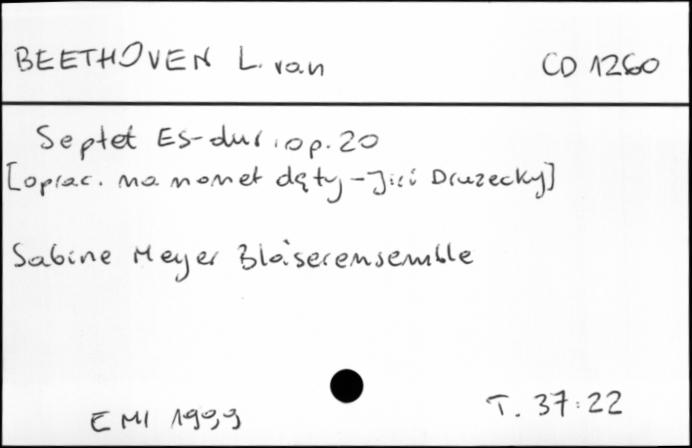 BEETHOVEN L. van CD 1260
Septet Es-dur, op. 20
[oprac. na nonet dęty - Jiří Druzecky]
Sabine Meyer Bläserensemble
EMI 1999 T. 37:22